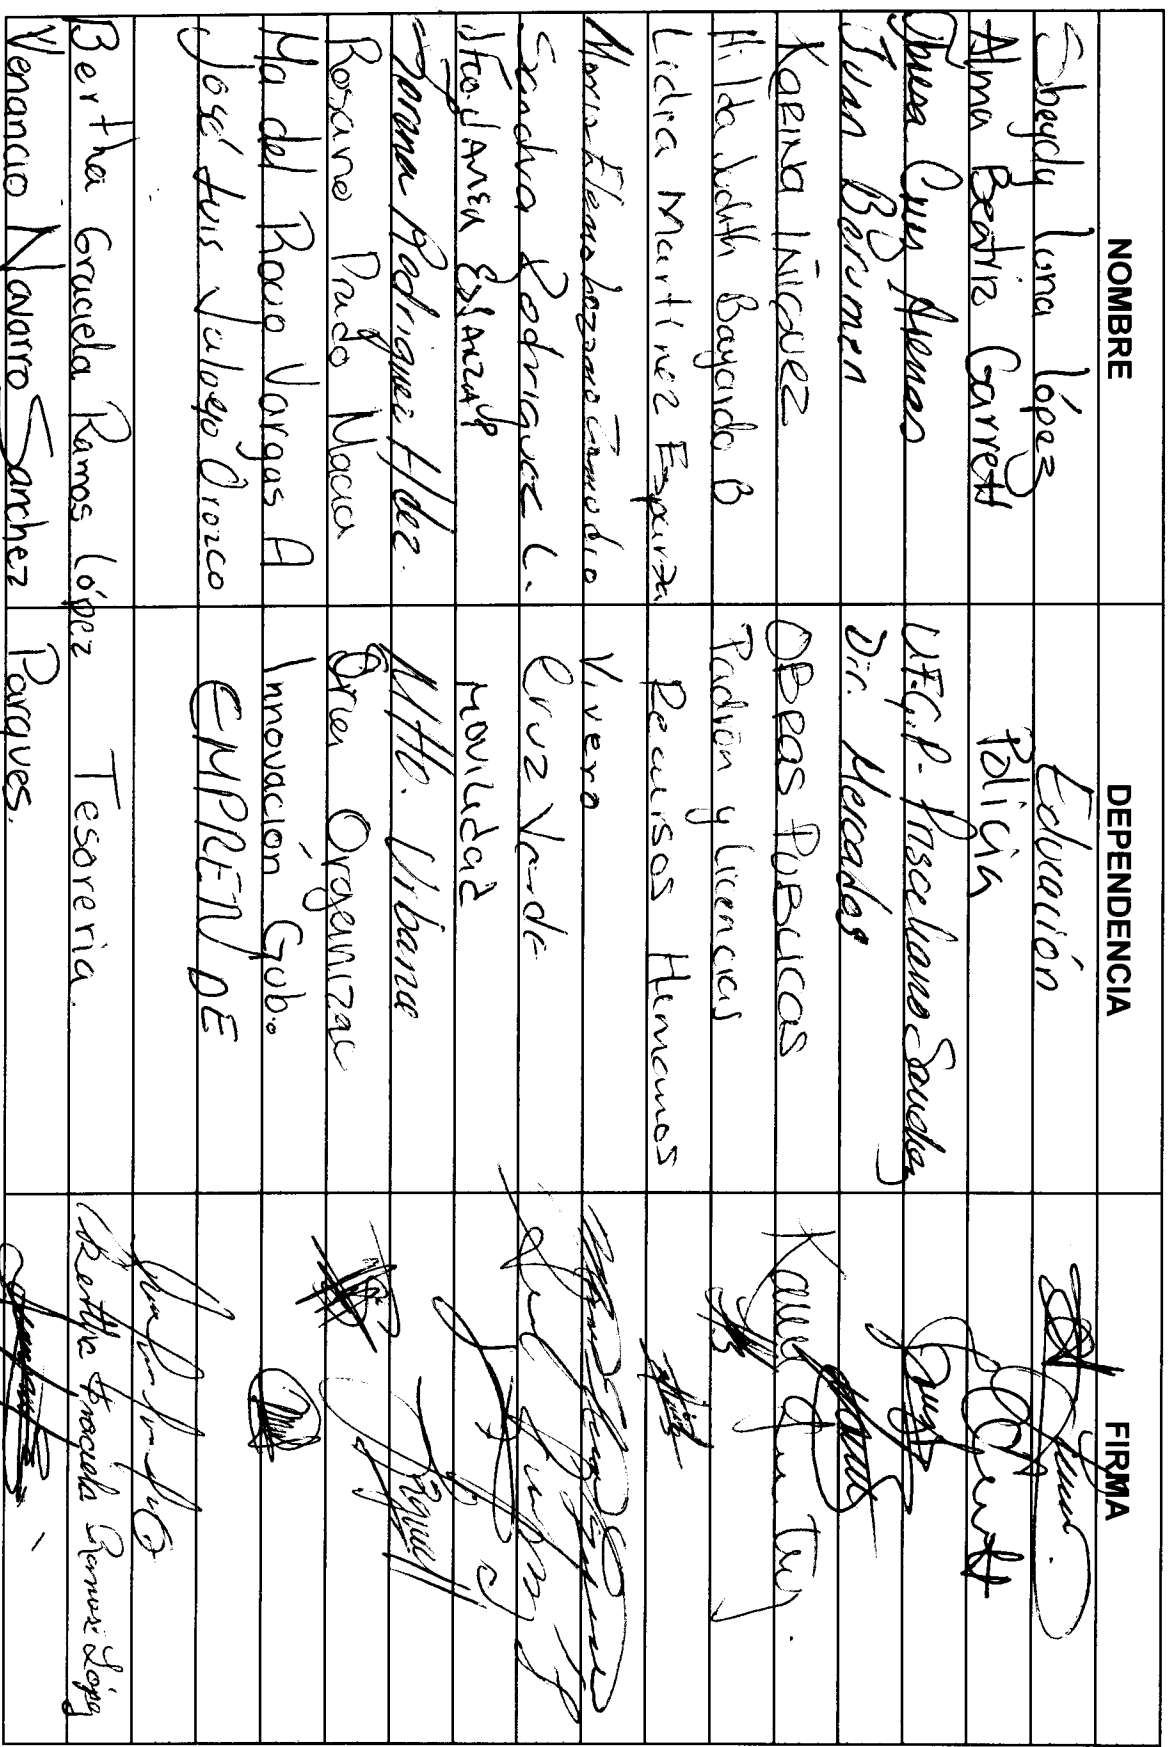 NOMBRE DEPENDENCIA FIRMA
Sbeydy Luna López Educación
Alma Beatriz Garrett Policía
Cruz Arenas U.F.G.P.
Juan Barumen Dir. Mercados
KARINA IÑIGUEZ OBRAS PUBLICAS
Hilda Judith Bayardo B Padrón y Licencias
Lidia Martinez Esparza Recursos Humanos
Maria Elena Lozano Zamudio Vivero
Sandra Rodriguez L. Cruz Verde
JAVIER ESPARZA MOVILIDAD
Rodriguez Hdez. Mtto. Urbano
Rosario Prado Macia
Ma del Rocio Vargas A Innovación Gub.
José Luis Vallejo Orozco EMPRENDE
Bertha Graciela Ramos López Tesoreria. Bertha Graciela Ramos López
Venancio Navarro Sanchez Parques.